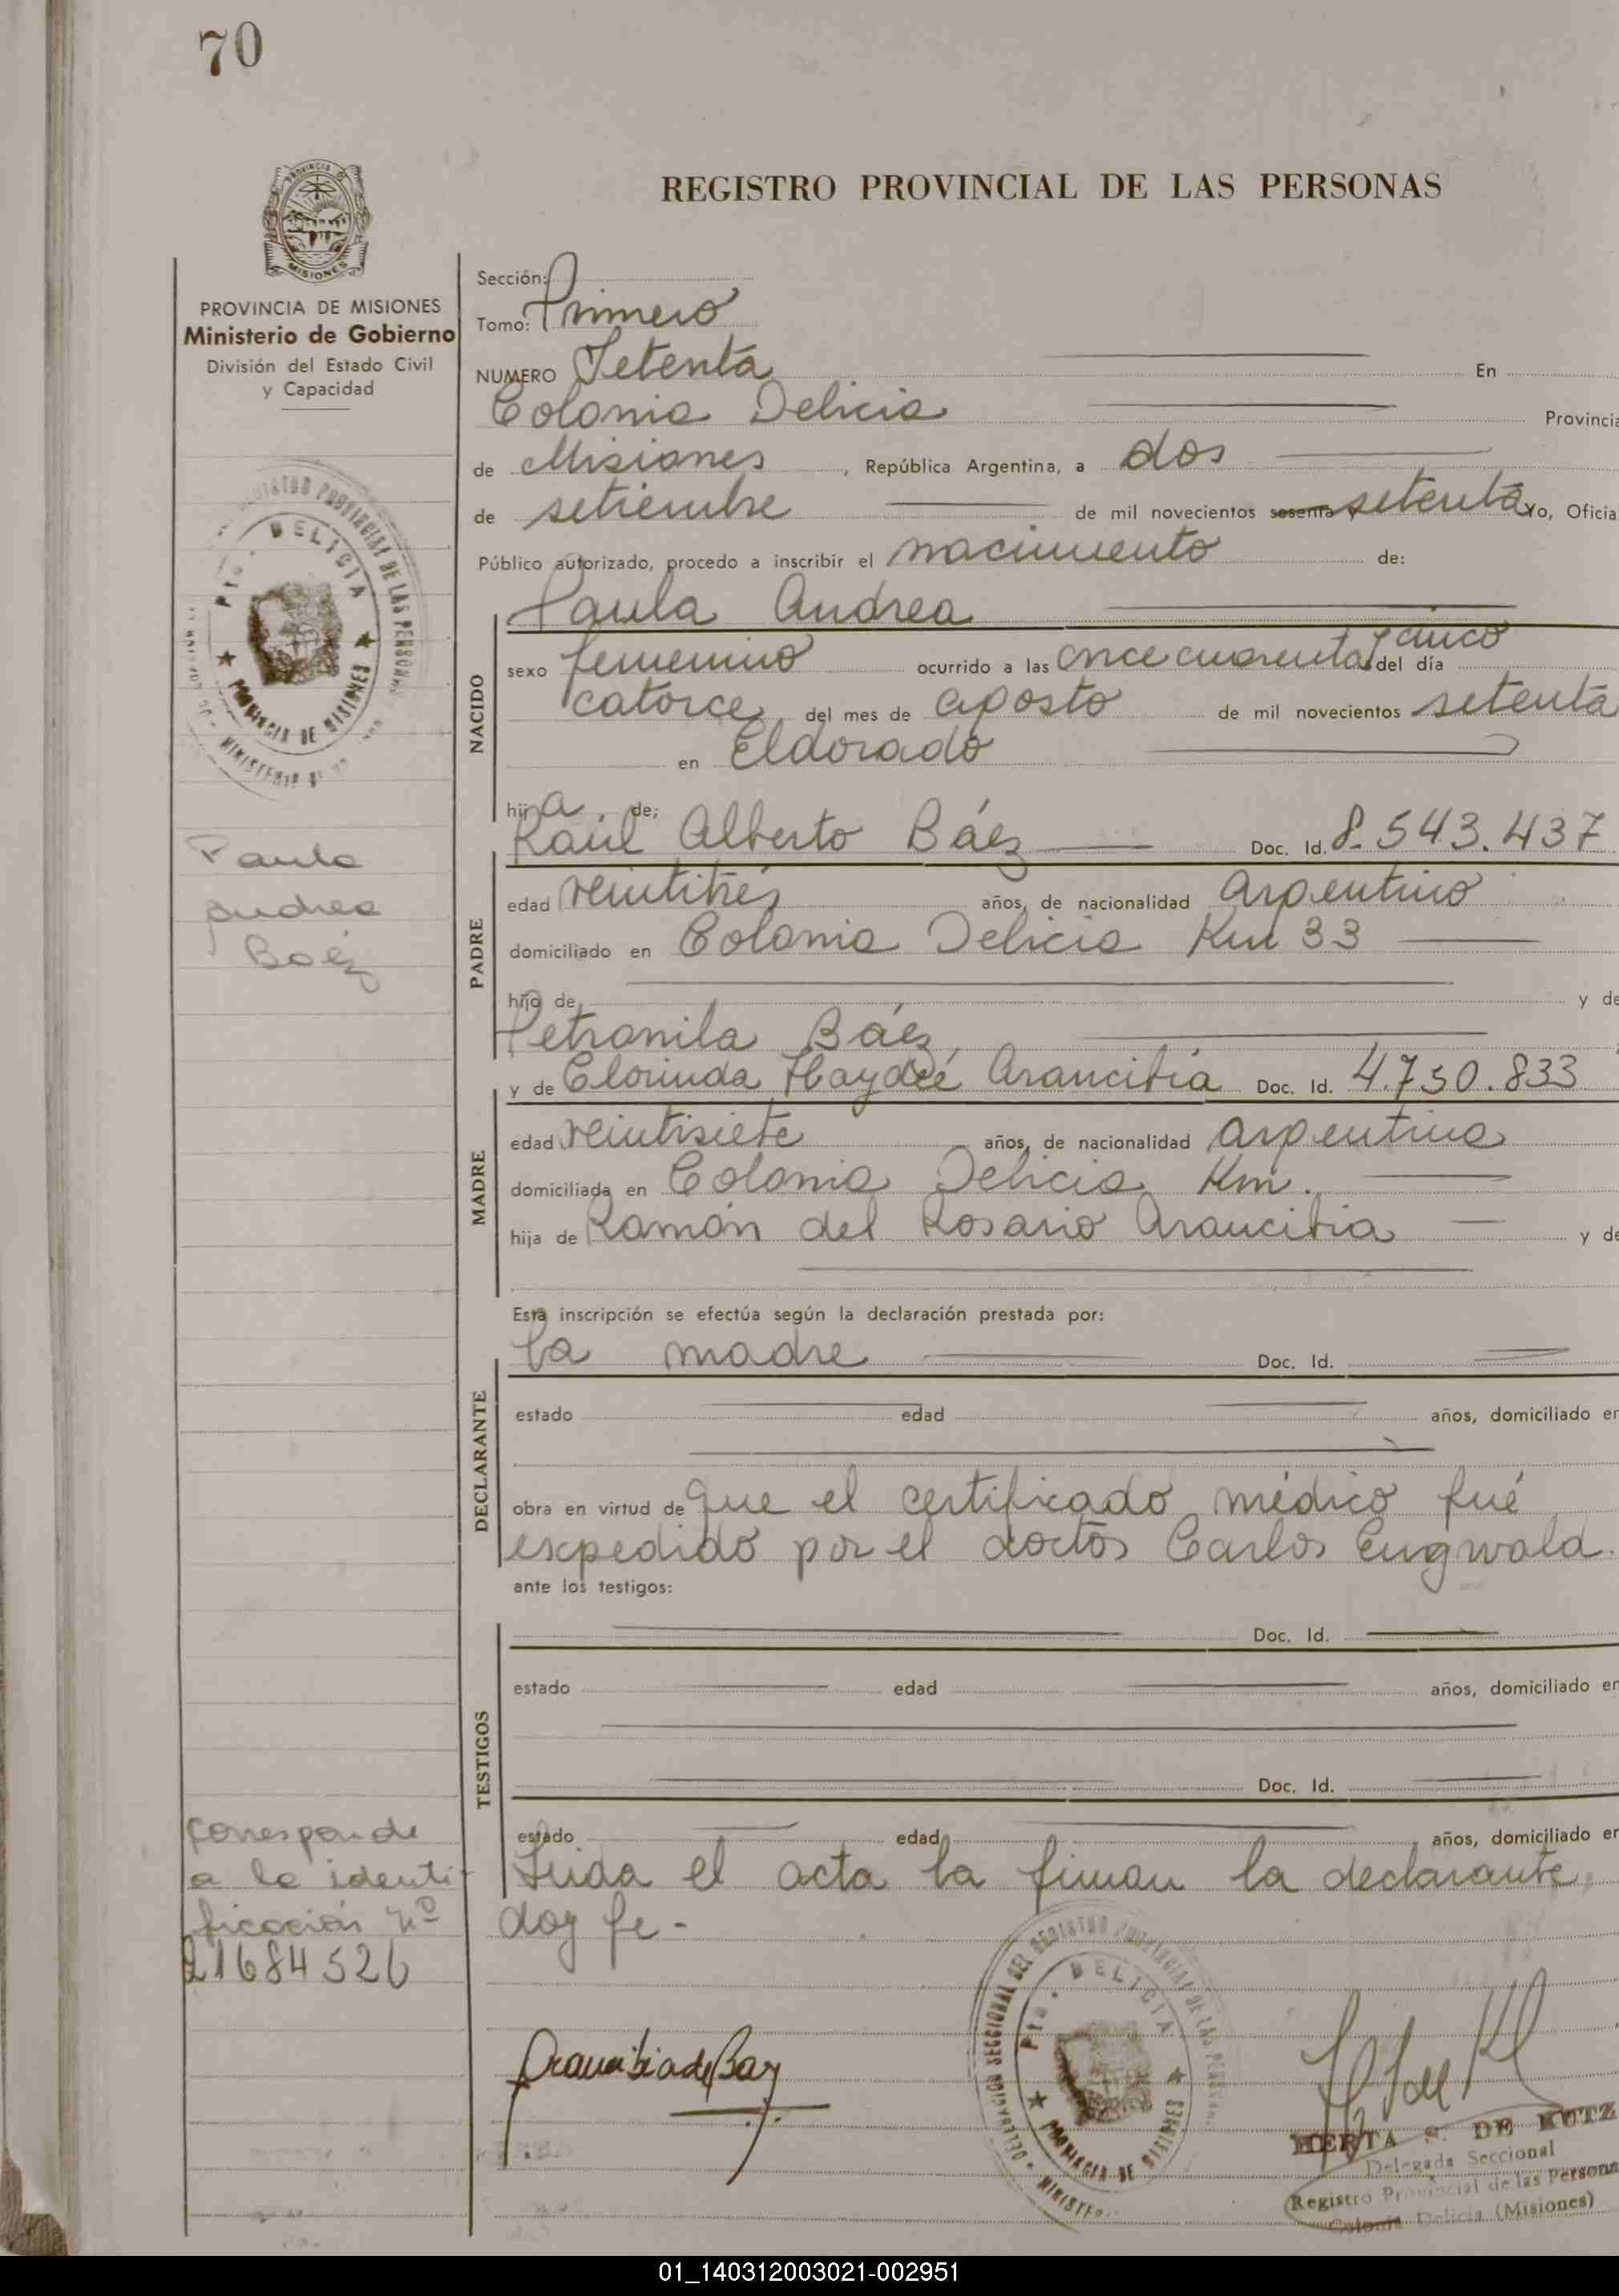 70
REGISTRO PROVINCIAL DE LAS PERSONAS
PROVINCIA DE MISIONES
Ministerio de Gobierno
División del Estado Civil
y Capacidad
Sección:
Tomo: Primero
NUMERO Setenta En
Colonia Delicia Provincia
de Misiones, República Argentina, a dos
de setiembre de mil novecientos sesenta y setenta Yo, Oficia
Público autorizado, procedo a inscribir el nacimiento de:
NACIDO
Paula Andrea
sexo femenino ocurrido a las once cuarenta y cinco del día
catorce del mes de agosto de mil novecientos setenta
en Eldorado
hija de;
PADRE
Raúl Alberto Báez Doc. Id. 8.543.437
edad veintitrés años, de nacionalidad argentino
domiciliado en Colonia Delicia Km 33
hijo de y de
Petronila Báez
MADRE
y de Clorinda Haydeé Arancibia Doc. Id. 4.750.833
edad veintisiete años, de nacionalidad argentina
domiciliada en Colonia Delicia Km.
hija de Ramón del Rosario Arancibia y de
Esta inscripción se efectúa según la declaración prestada por:
DECLARANTE
la madre Doc. Id.
estado edad años, domiciliado en
obra en virtud de que el certificado médico fué
expedido por el doctor Carlos Engwald.
ante los testigos:
TESTIGOS
Doc. Id.
estado edad años, domiciliado en
Doc. Id.
estado edad años, domiciliado en
Leida el acta la firman la declarante,
doy fe -
Paula
Andrea
Baéz
Corresponde
a la identi-
ficación Nº
21684526
REGISTRO PROVINCIAL DE LAS PERSONAS
Pto. DELICIA
PROVINCIA DE MISIONES
DELEGACION SECCIONAL DEL REGISTRO PROVINCIAL DE LAS PERSONAS
Pto. DELICIA
PROVINCIA DE MISIONES
Arancibia de Baez
HERTA S. DE KUTZ
Delegada Seccional
Registro Provincial de las Persona
Colonia Delicia (Misiones)
01_140312003021-002951